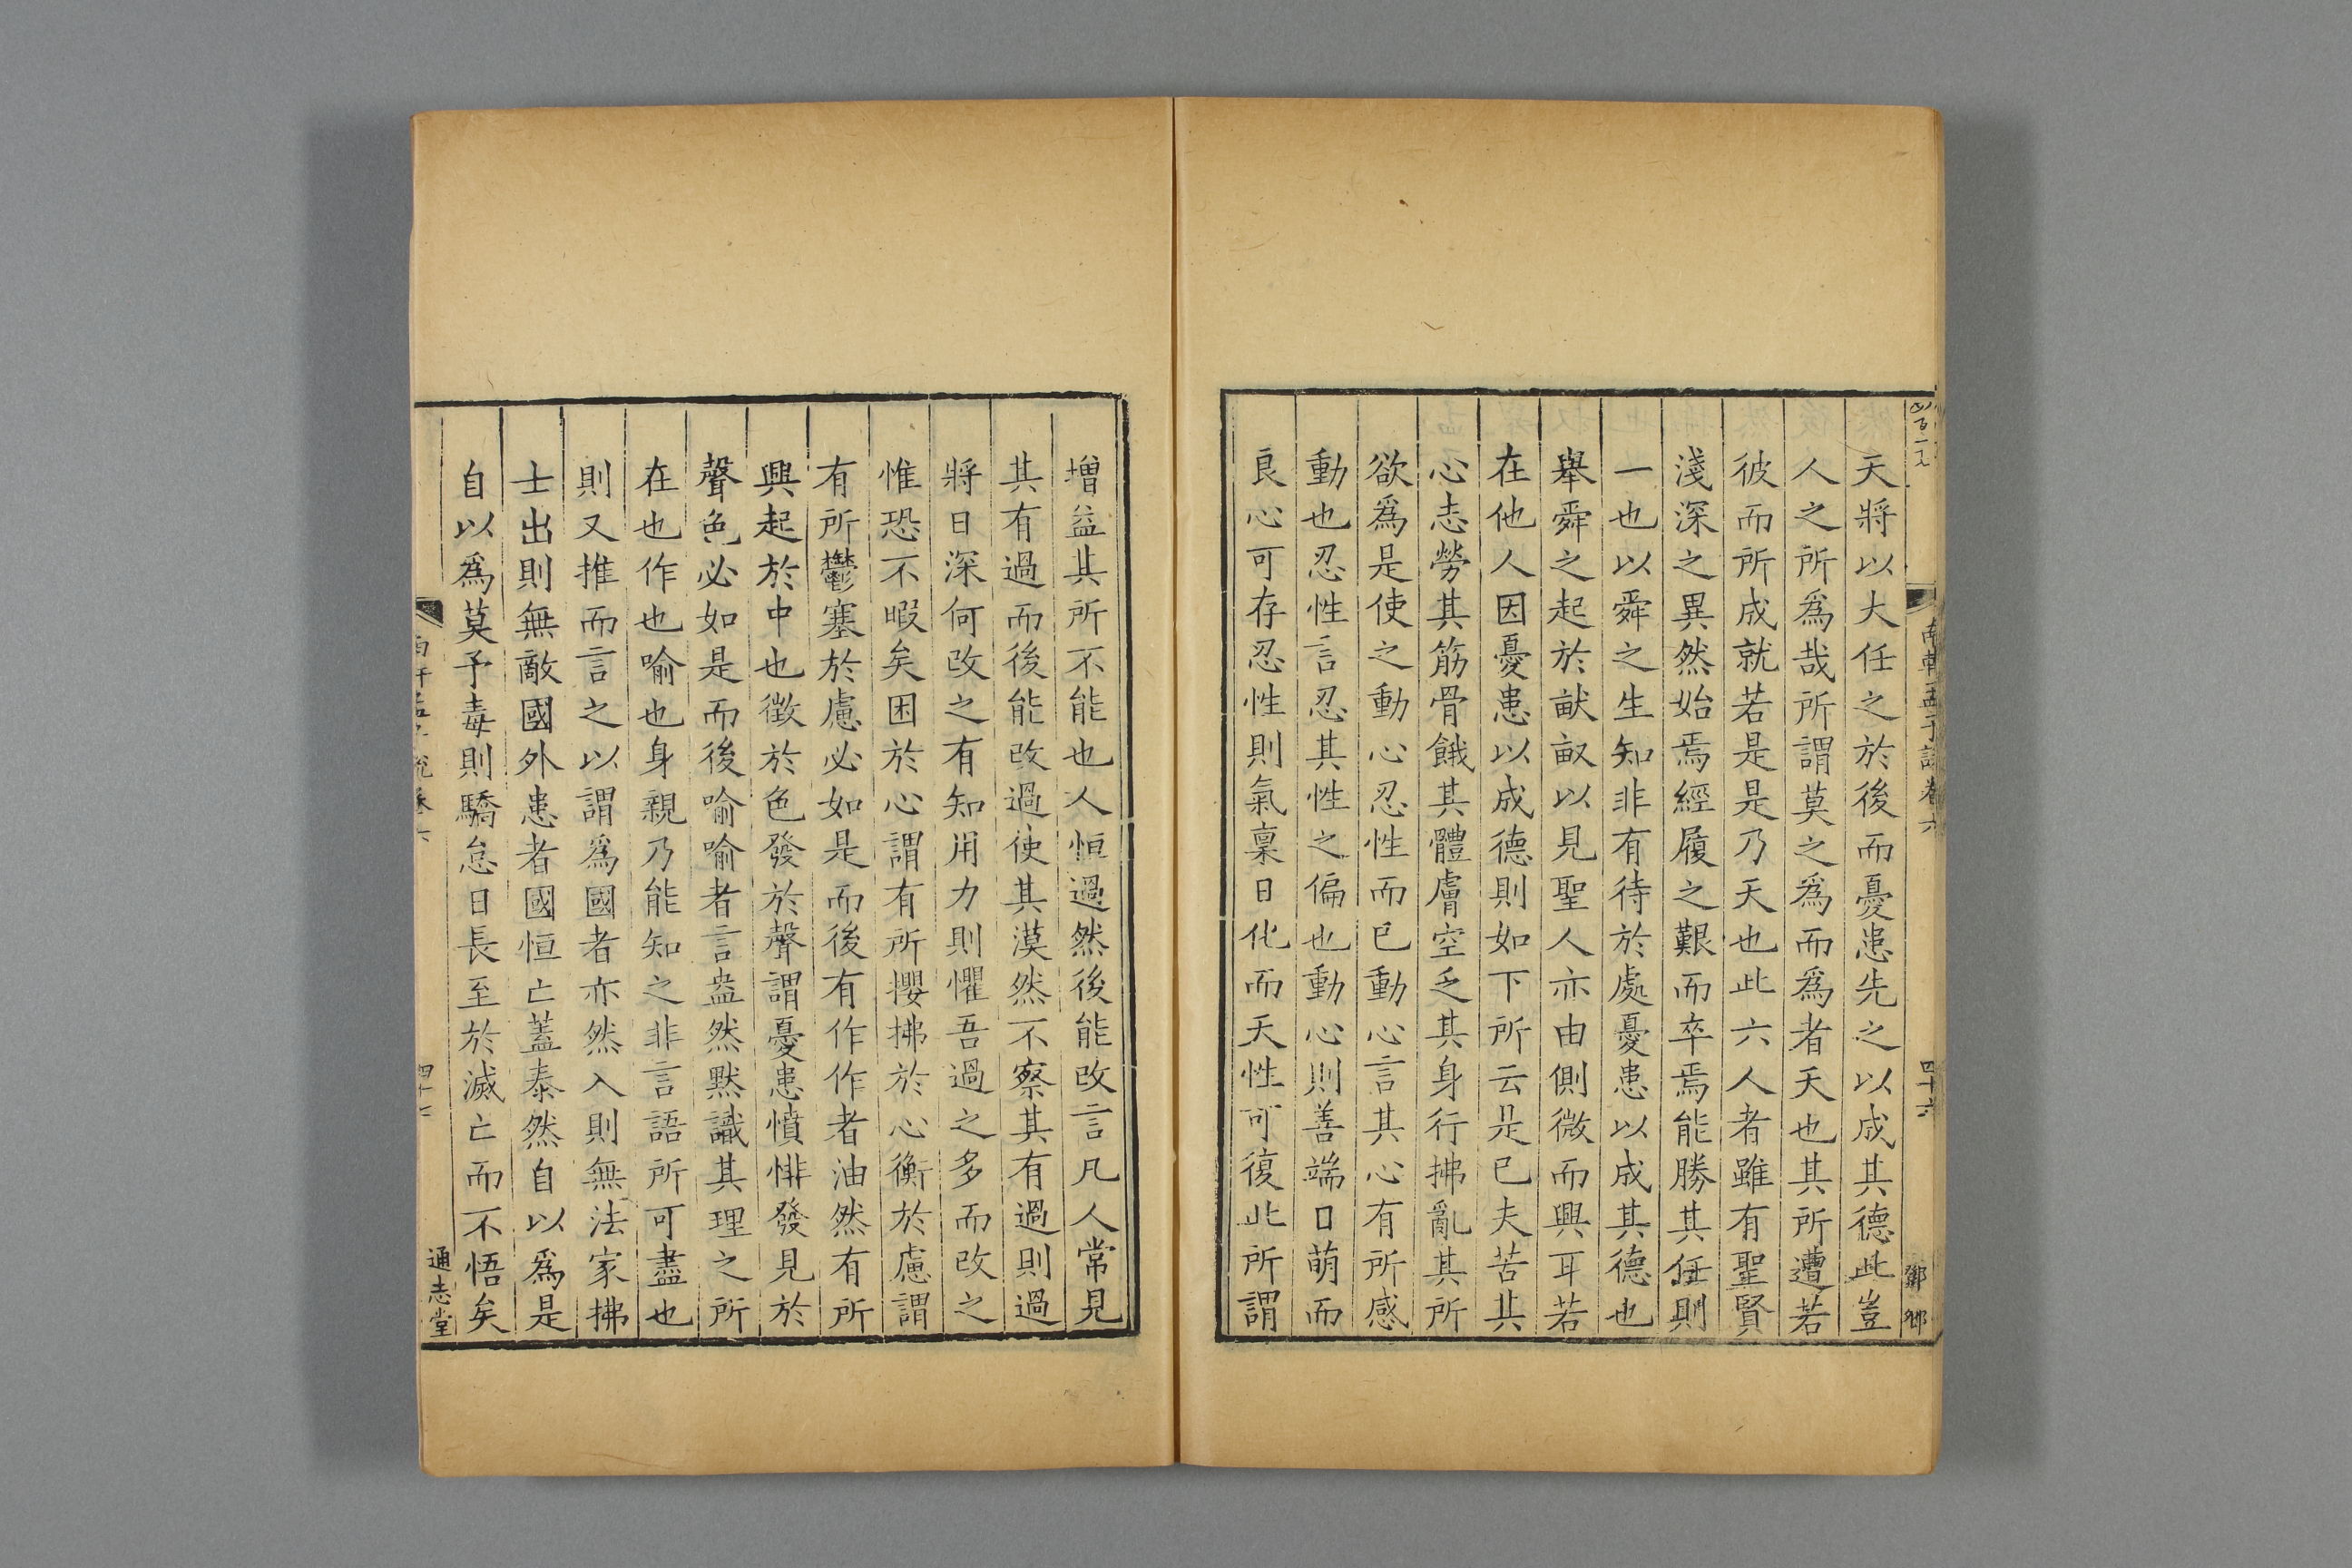 天將以大任之於後而憂患先之以成其德此豈
人之所爲哉所謂莫之爲而爲者天也其所遭若
彼而所成就若是是乃天也此六人者雖有聖賢
淺深之異然始焉經履之艱而卒焉能勝其任則
一也以舜之生知非有待於處憂患以成其德也
舉舜之起於畎畝以見聖人亦由側微而興耳若
在他人因憂患以成德則如下所云是已夫苦其
心志勞其筋骨餓其體膚空乏其身行拂亂其所
欲爲是使之動心忍性而已動心言其心有所感
動也忍性言忍其性之偏也動心則善端日萌而
良心可存忍性則氣稟日化而天性可復此所謂
南軒孟子說卷六
四十六
鄧卿
增益其所不能也人恒過然後能改言凡人常見
其有過而後能改過使其漠然不察其有過則過
將日深何改之有知用力則懼吾過之多而改之
惟恐不暇矣困於心謂有所攖拂於心衡於慮謂
有所鬱塞於慮必如是而後有作作者油然有所
興起於中也徵於色發於聲謂憂患憤悱發見於
聲色必如是而後喻喻者言盎然默識其理之所
在也作也喻也身親乃能知之非言語所可盡也
則又推而言之以謂爲國者亦然入則無法家拂
士出則無敵國外患者國恒亡蓋泰然自以爲是
自以爲莫予毒則驕怠日長至於滅亡而不悟矣
通志堂